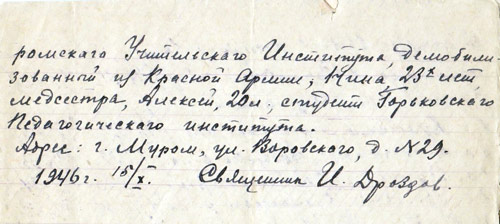 ромскаго Учительскаго Института, демобили-
зованный из Красной Армии, Нина 23х лет,
медсестра, Алексей, 20л. студент Горьковскаго
Педагогическаго института.
Адрес: г. Муром, ул. Воровского, д. N29.
1946г. 15/X. Священник И. Дроздов.